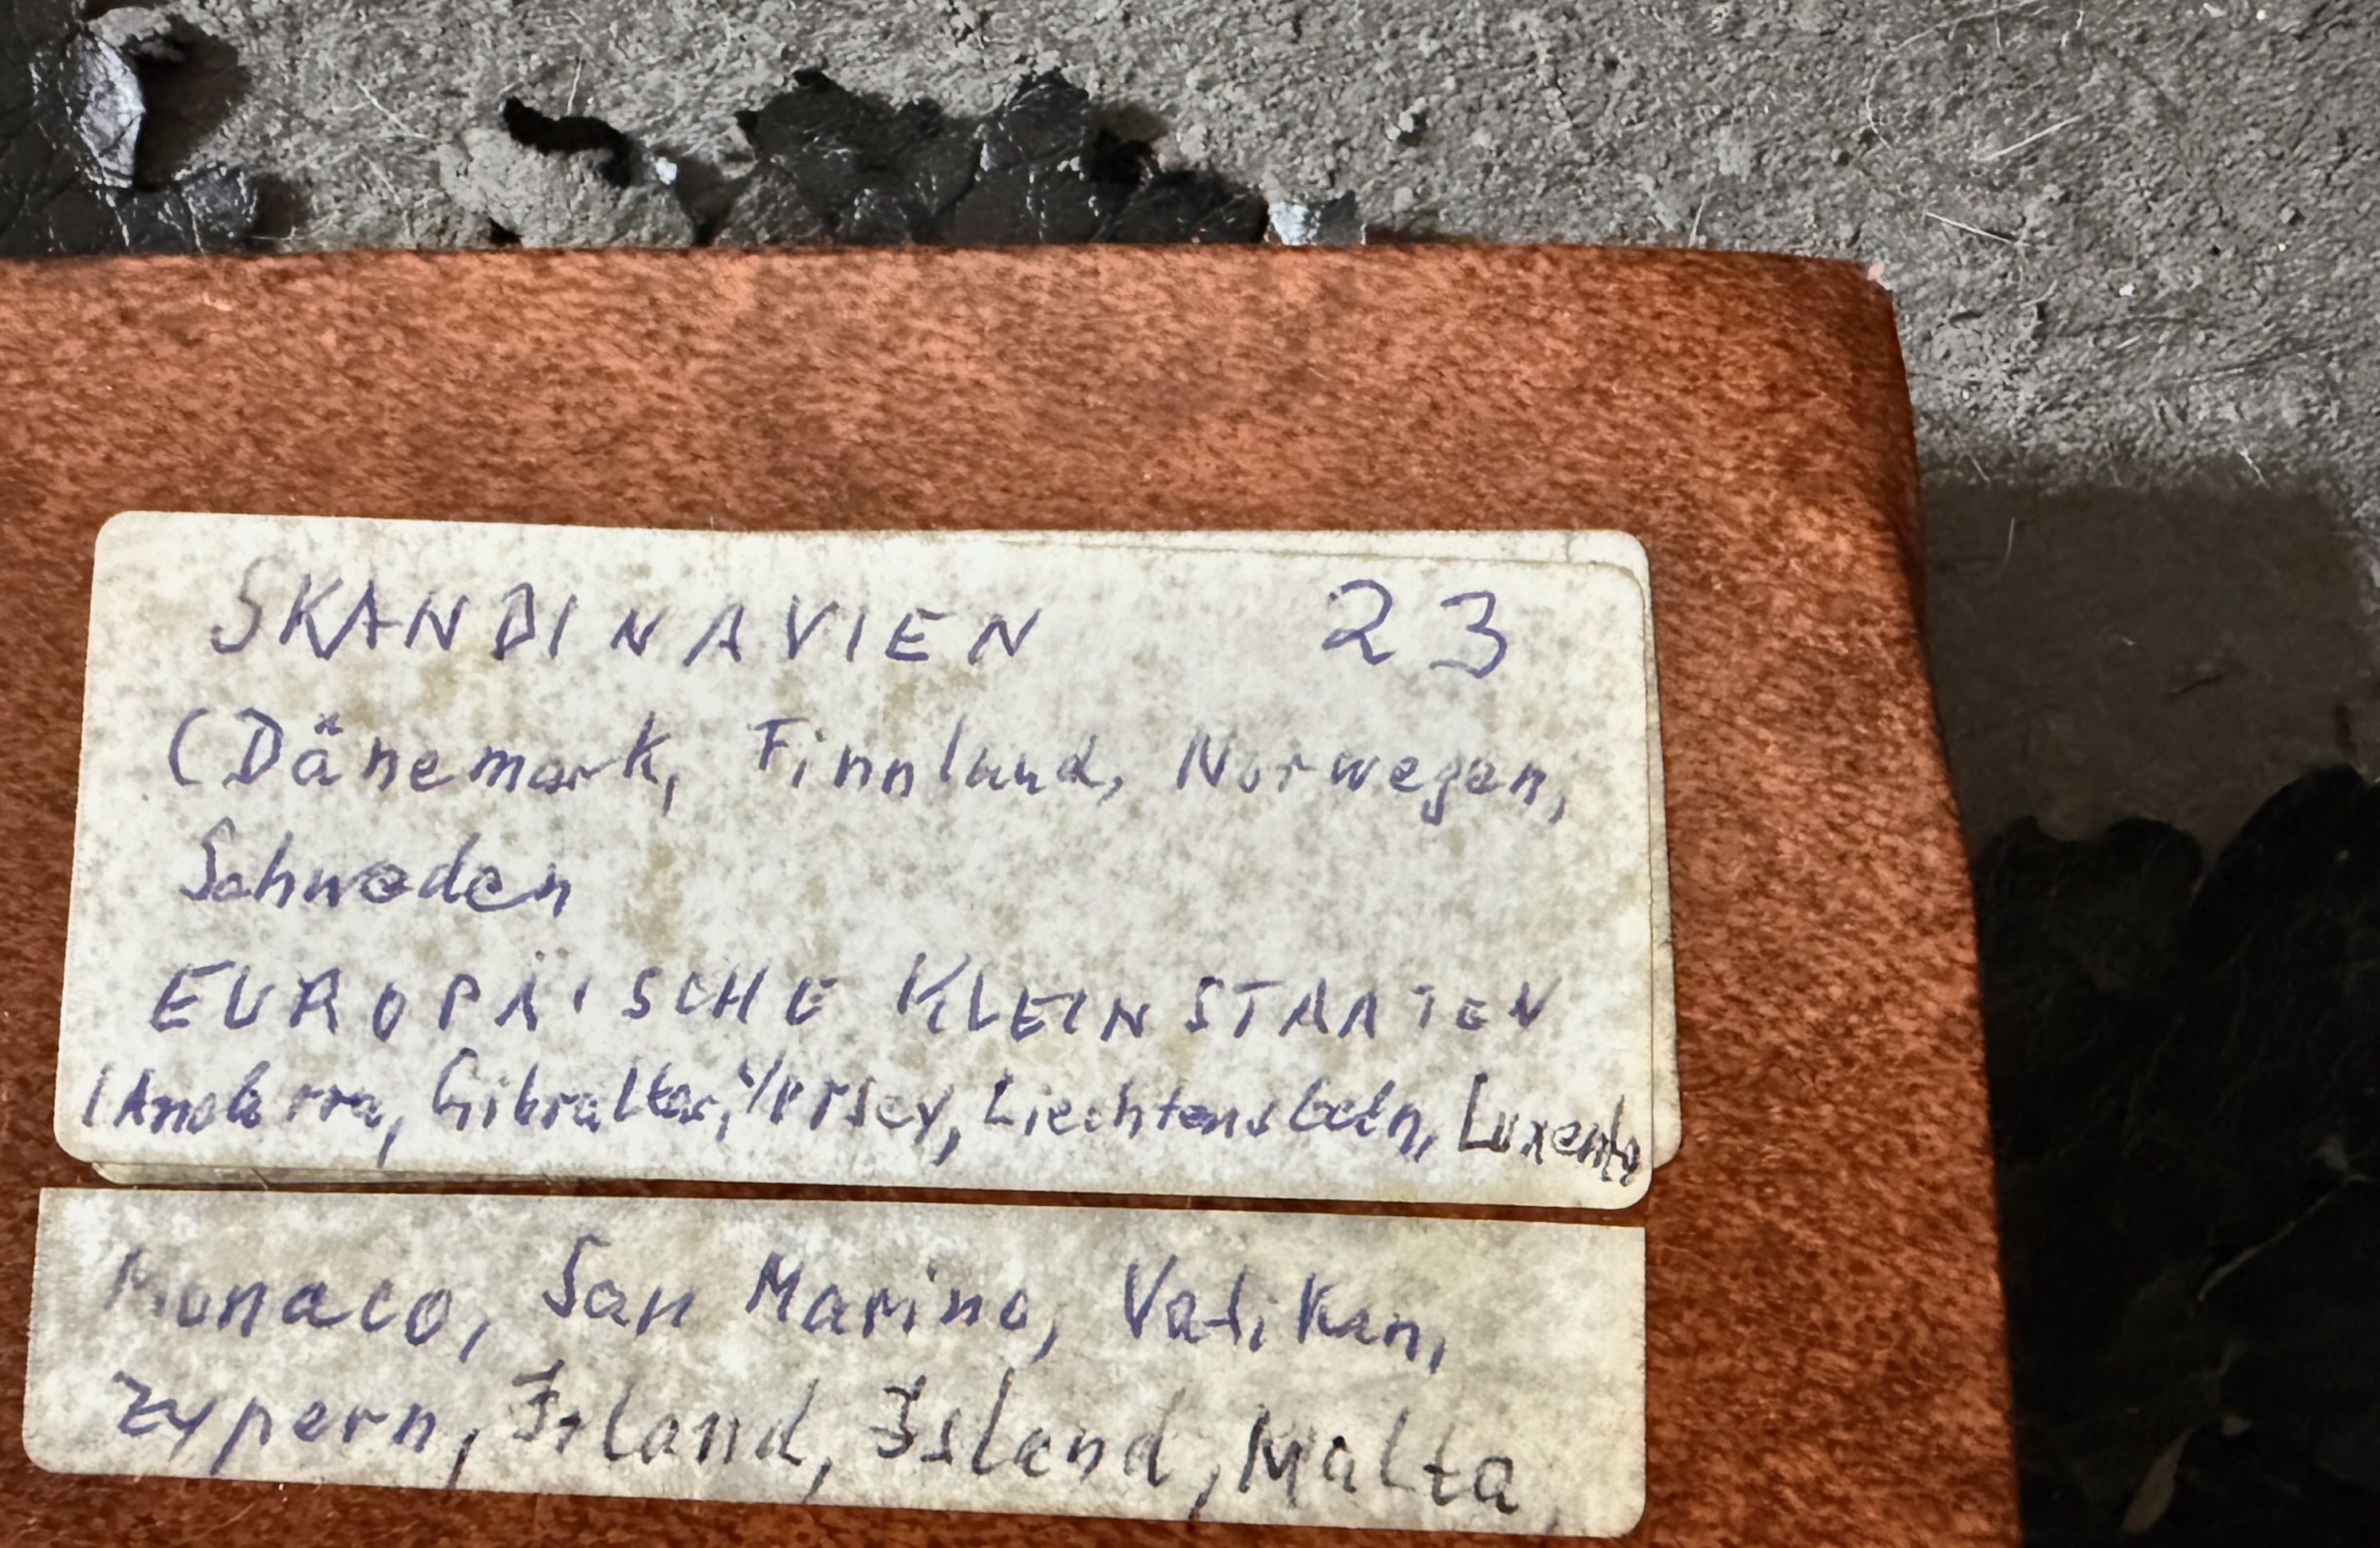 SKANDINAVIEN 23
(Dänemark, Finnland, Norwegen,
Schweden
EUROPÄISCHE KLEINSTAATEN
(Andorra, Gibraltar, Liechtenstein, Luxemb
Monaco, San Marino, Vatikan,
Zypern, Irland, Island, Malta